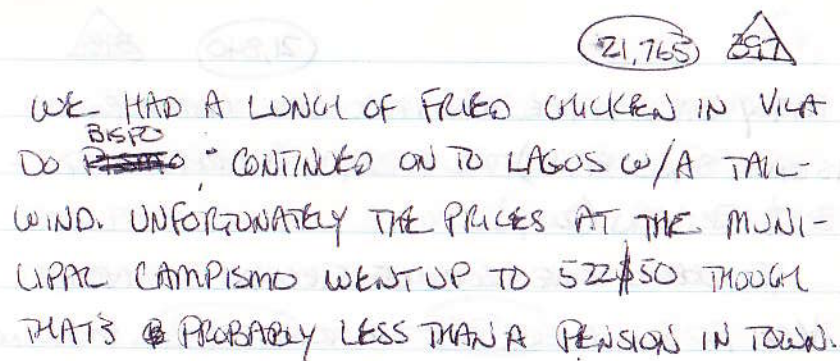 21,765 397
WE HAD A LUNCH OF FRIED CHICKEN IN VILA
BISPO
DO ; CONTINUED ON TO LAGOS W/A TAIL-
WIND. UNFORTUNATELY THE PRICES AT THE MUNI-
CIPAL CAMPISMO WENT UP TO 522$50 THOUGH
THAT'S PROBABLY LESS THAN A PENSION IN TOWN.